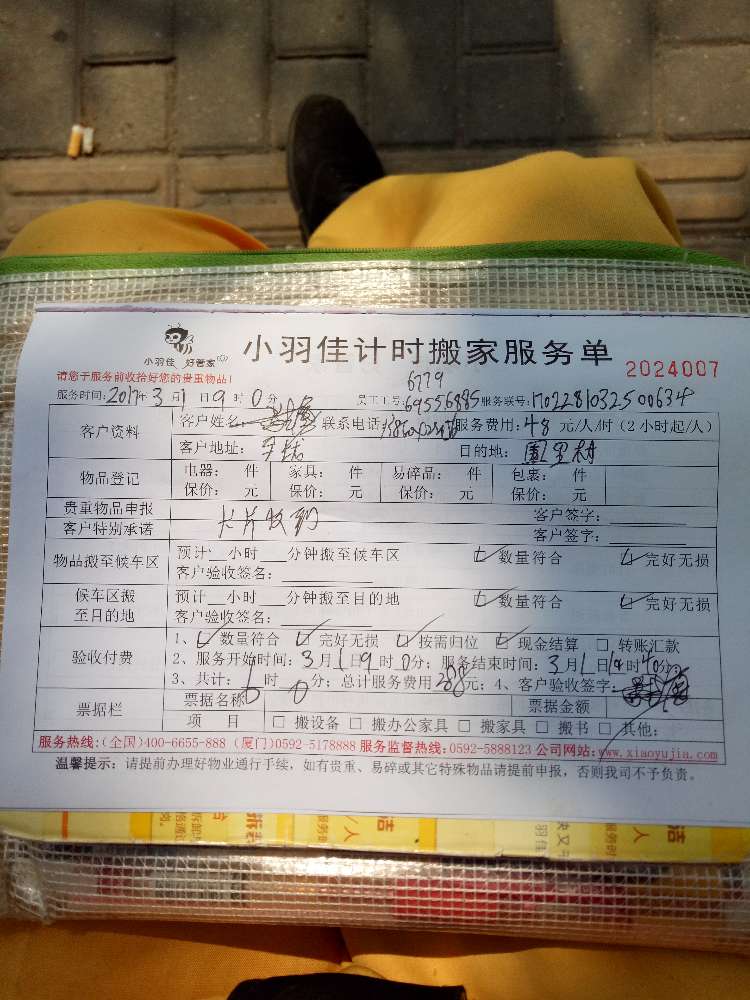 小羽佳 好管家 小羽佳计时搬家服务单 2024007
请您于服务前收拾好您的贵重物品!
6779
服务时间: 2017年 3月 1日 9时 0分 员工工号: 69556885 服务联号: 1702281032500634
客户资料 客户姓名 联系电话 服务费用: 48 元/人/时 (2小时起/人)
客户地址: 目的地: 围里村
物品登记 电器: 件 家具: 件 易碎品: 件 包裹: 件
保价: 元 保价: 元 保价: 元 保价: 元
贵重物品申报 客户签字:
客户特别承诺 客户签字:
物品搬至候车区 预计: 小时 分钟搬至候车区 数量符合 完好无损
客户验收签名:
候车区搬至目的地 预计: 小时 分钟搬至目的地 数量符合 完好无损
客户验收签名:
验收付费 1、 数量符合 完好无损 按需归位 现金结算 □ 转账汇款
2、服务开始时间: 3月 1日 9时 0分; 服务结束时间: 3月 1日 时 40分;
3、共计: 6时 0分; 总计服务费用 288元; 4、客户验收签字:
票据栏 票据名称 票据金额
项 目 □ 搬设备 □ 搬办公家具 □ 搬家具 □ 搬书 □ 其他:
服务热线:(全国)400-6655-888 (厦门)0592-5178888 服务监督热线:0592-5888123 公司网站:www.xiaoyujia.com
温馨提示: 请提前办理好物业通行手续, 如有贵重、易碎或其它特殊物品请提前申报, 否则我司不予负责。